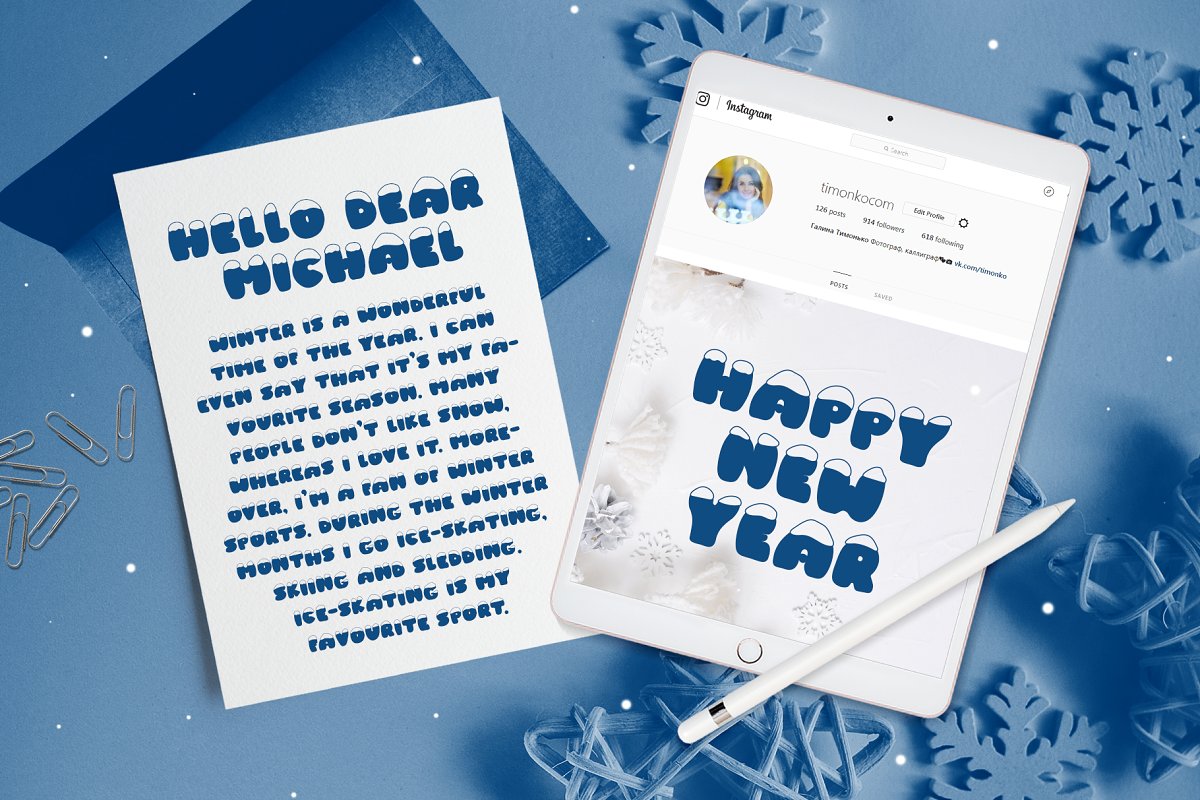 HELLO DEAR
MICHAEL
WINTER IS A WONDERFUL
TIME OF THE YEAR. I CAN
EVEN SAY THAT IT'S MY FA-
VOURITE SEASON. MANY
PEOPLE DON'T LIKE SNOW,
WHEREAS I LOVE IT. MORE-
OVER, I'M A FAN OF WINTER
SPORTS. DURING THE WINTER
MONTHS I GO ICE-SKATING,
SKIING AND SLEDDING.
ICE-SKATING IS MY
FAVOURITE SPORT.
Instagram
Search
timonkocom Edit Profile
126 posts 914 followers 618 following
Галина Тимонько Фотограф, каллиграф vk.com/timonko
POSTS SAVED
HAPPY
NEW
YEAR